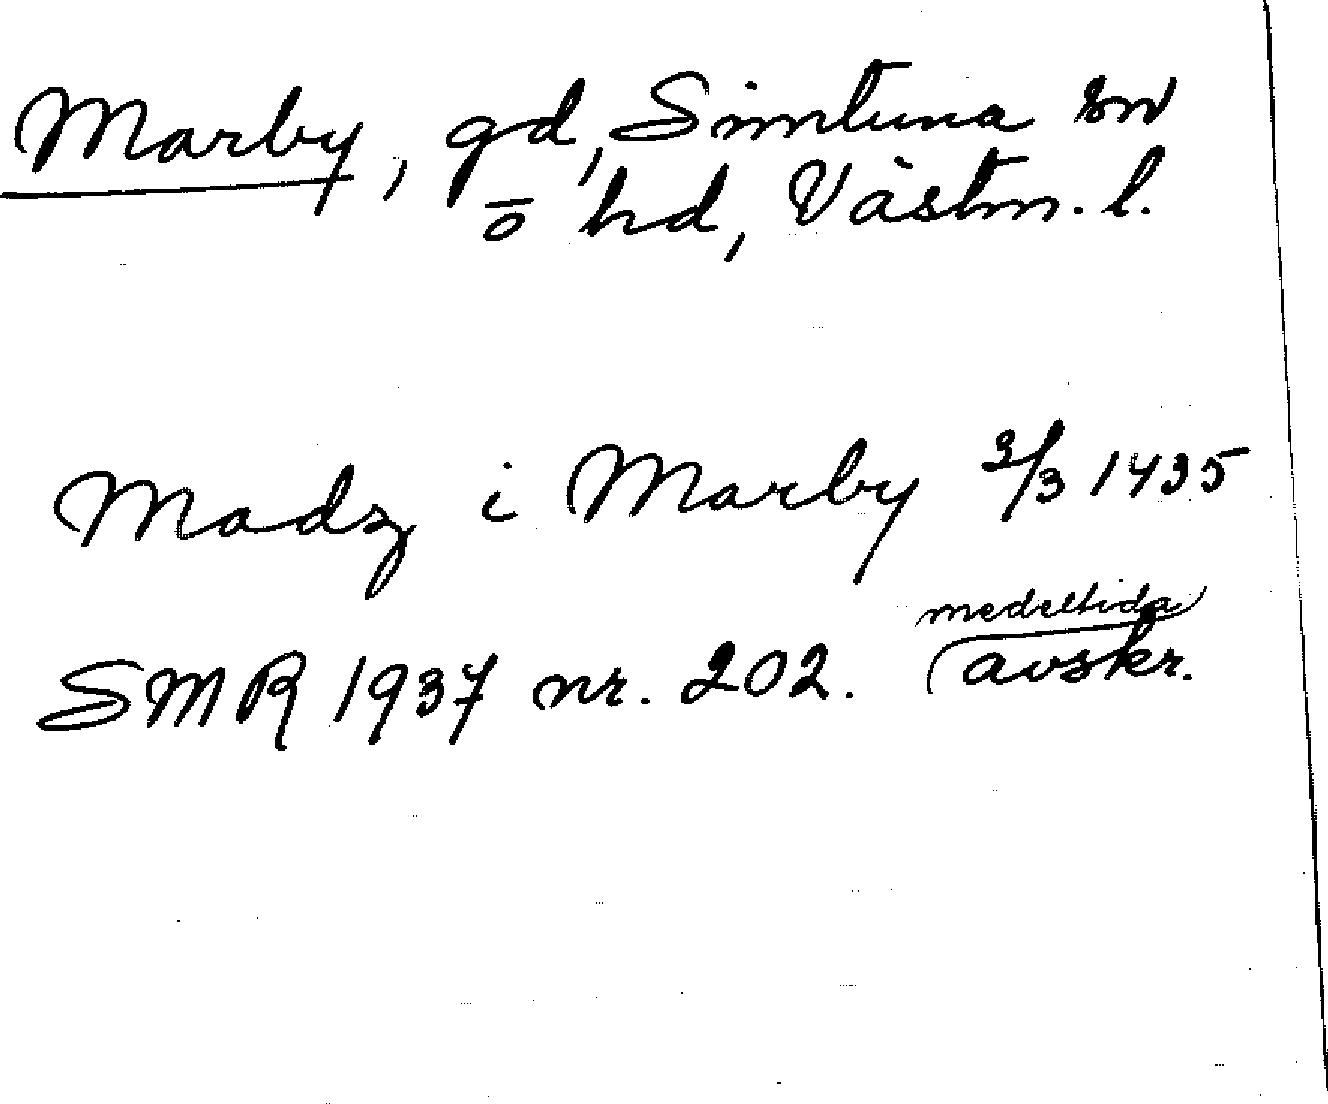 Marby, gd, Simtuna sn
ō hd, Västm. l.
Madz i Marby 3/3 1435
medeltida
SMR 1937 nr. 202. (avskr.